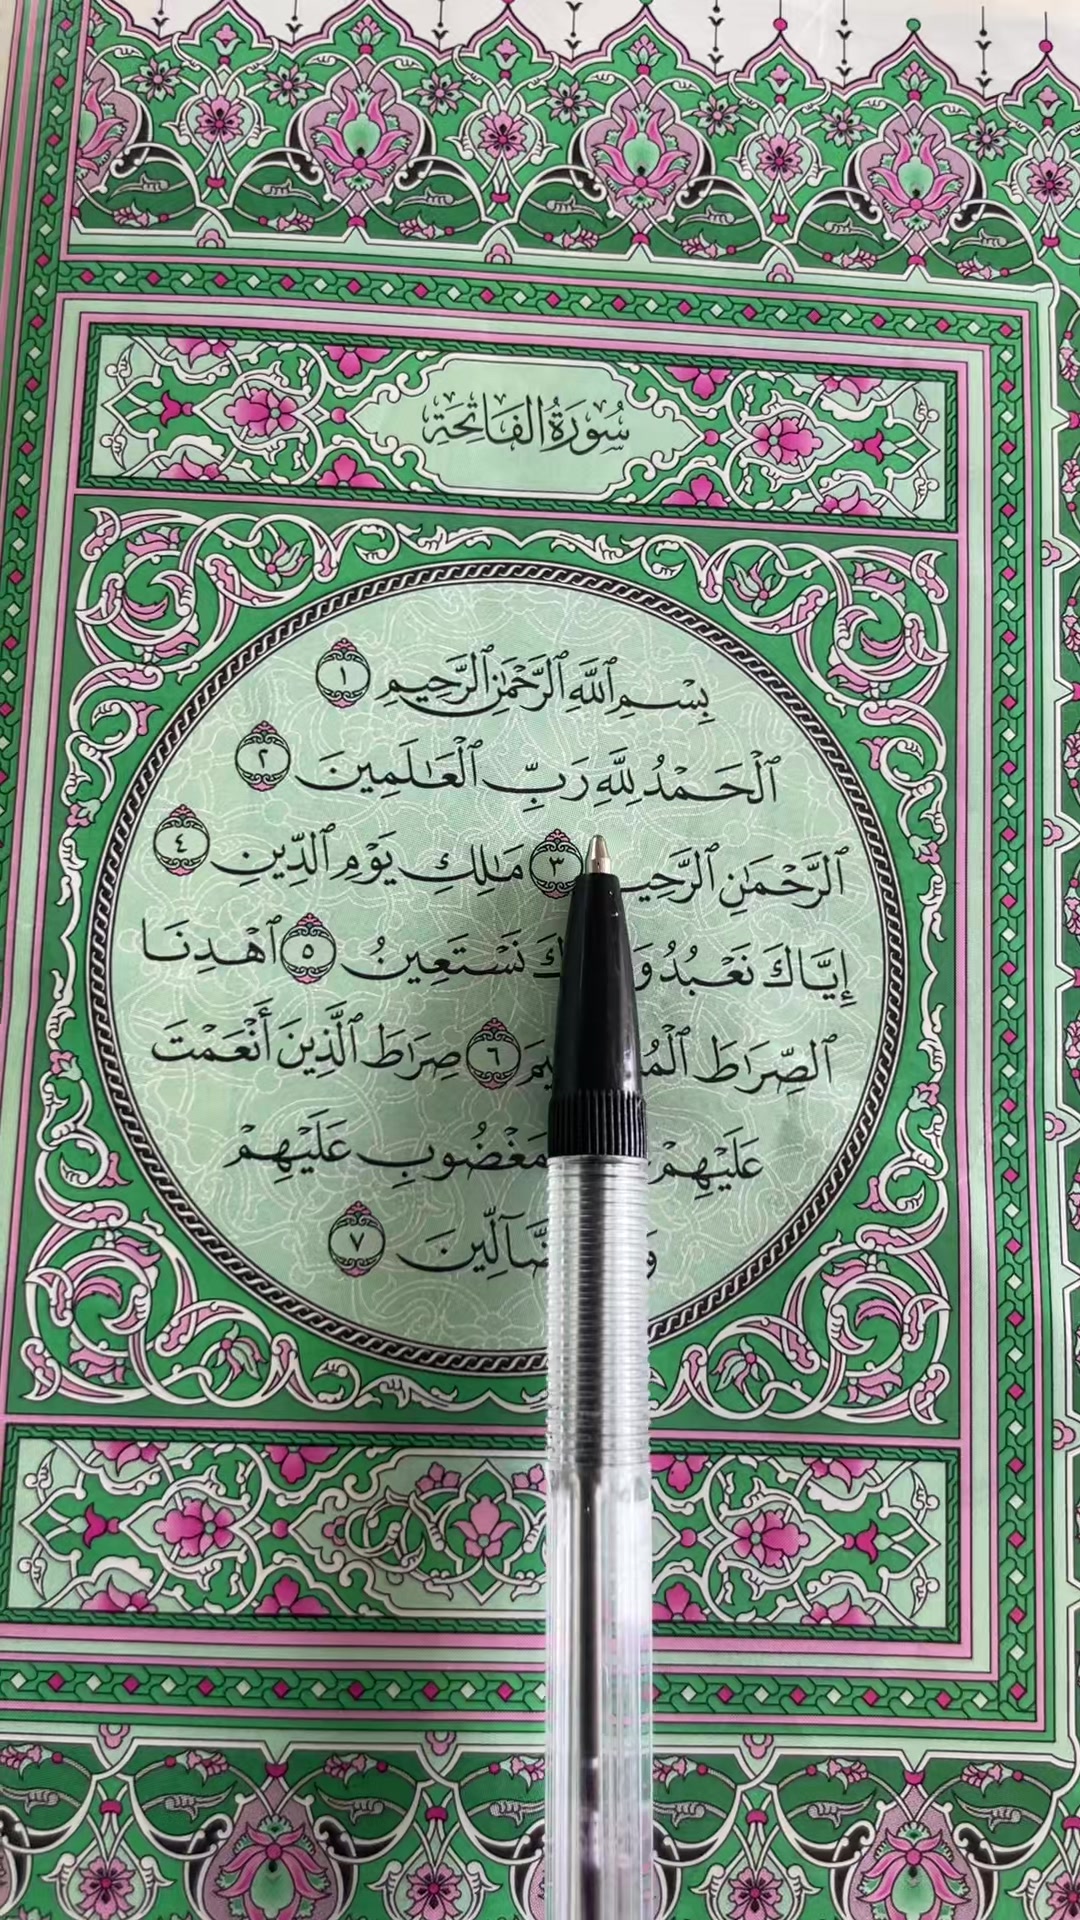 سُورَةُ الْفَاتِحَةِ
بِسْمِ ٱللَّهِ ٱلرَّحْمَٰنِ ٱلرَّحِيمِ ١
ٱلْحَمْدُ لِلَّهِ رَبِّ ٱلْعَٰلَمِينَ ٢
ٱلرَّحْمَٰنِ ٱلرَّحِيمِ ٣ مَٰلِكِ يَوْمِ ٱلدِّينِ ٤
إِيَّاكَ نَعْبُدُ نَسْتَعِينُ ٥ ٱهْدِنَا
ٱلصِّرَٰطَ ٦ صِرَٰطَ ٱلَّذِينَ أَنْعَمْتَ
عَلَيْهِمْ عَلَيْهِمْ
٧